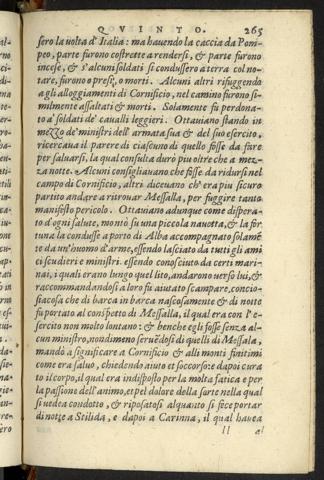 QVINTO. 265
sero la uolta d'Italia: ma hauendo la caccia da Pom-
peo, parte furono costrette a rendersi, & parte furono
incese, & s'alcuni soldati si condussero a terra col no-
tare, furono o presi, o morti. Alcuni altri rifuggendo
a gli alloggiamenti di Cornificio, nel camino furono si-
milmente assaltati & morti. Solamente fu perdona-
to a' soldati de' caualli leggieri. Ottauiano stando in
mezzo de' ministri dell'armata sua & del suo esercito,
ricercaua il parere di ciascuno di quello fosse da fare
per saluarsi, la qual consulta durò piu oltre che a mez-
za notte. Alcuni consigliauano che fosse da ridursi nel
campo di Cornificio, altri diceuano ch'era piu sicuro
partito andare a ritrouar Messalla, per fuggire tanto
manifesto pericolo. Ottauiano adunque come dispera-
to d'ogni salute, montò su una piccola nauetta, & la for
tuna la condusse a porto di Alba accompagnato solamē
te da un'huomo d'arme, essendo lasciato da tutti gli ami
ci scudieri e ministri. essendo conosciuto da certi mari-
nai, i quali erano lungo quel lito, andarono uerso lui, &
raccommandandosi a loro fu aiutato scampare, concio-
siacosa che di barca in barca nascosamente & di notte
fu portato al conspetto di Messalla, il qual era con l'e-
sercito non molto lontano: & benche egli fosse senza al-
cun ministro, nondimeno seruēdosi di quelli di Messala,
mandò a significare a Cornificio & alli monti finitimi
come era saluo, chiedendo aiuto et soccorso: dapoi cura
to il corpo, il qual era indisposto per la molta fatica e per
la passione dell'animo, et pel dolore della sorte nella qual
si uedea condotto, & riposatosi alquanto si fece portar
di notte a Stilida, e dapoi a Carinna, il qual hauea
II al